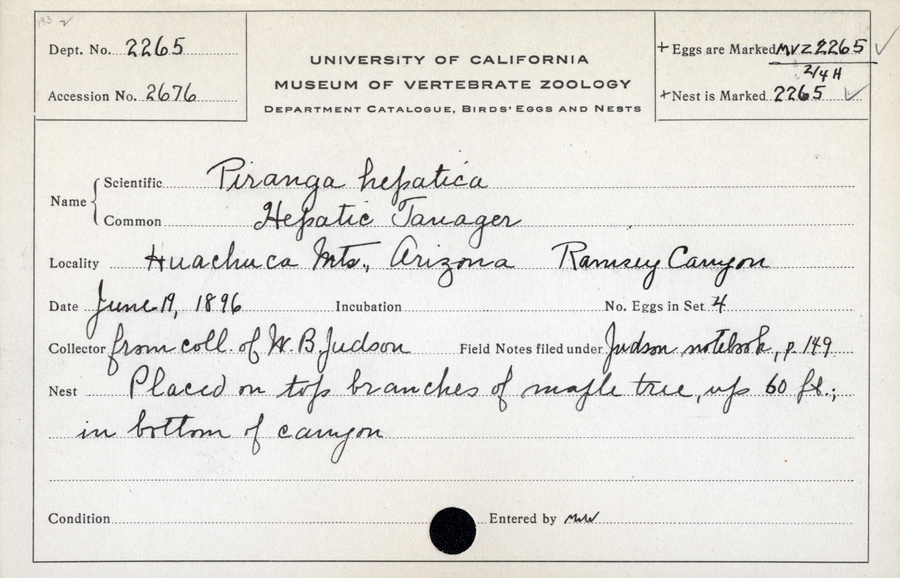 Dept. No. 2265
Accession No. 2676
UNIVERSITY OF CALIFORNIA
MUSEUM OF VERTEBRATE ZOOLOGY
DEPARTMENT CATALOGUE, BIRDS' EGGS AND NESTS
+ Eggs are Marked MVZ 2265 ✓
2/4 H
+ Nest is Marked 2265 ✓
Name { Scientific Piranga hepatica
Common Hepatic Tanager
Locality Huachuca Mts., Arizona Ramsey Canyon
Date June 19, 1896 Incubation No. Eggs in Set 4
Collector from coll. of W. B. Judson Field Notes filed under Judson notebook, p. 149
Nest Placed on top branches of maple tree, up 60 ft.;
in bottom of canyon
Condition Entered by